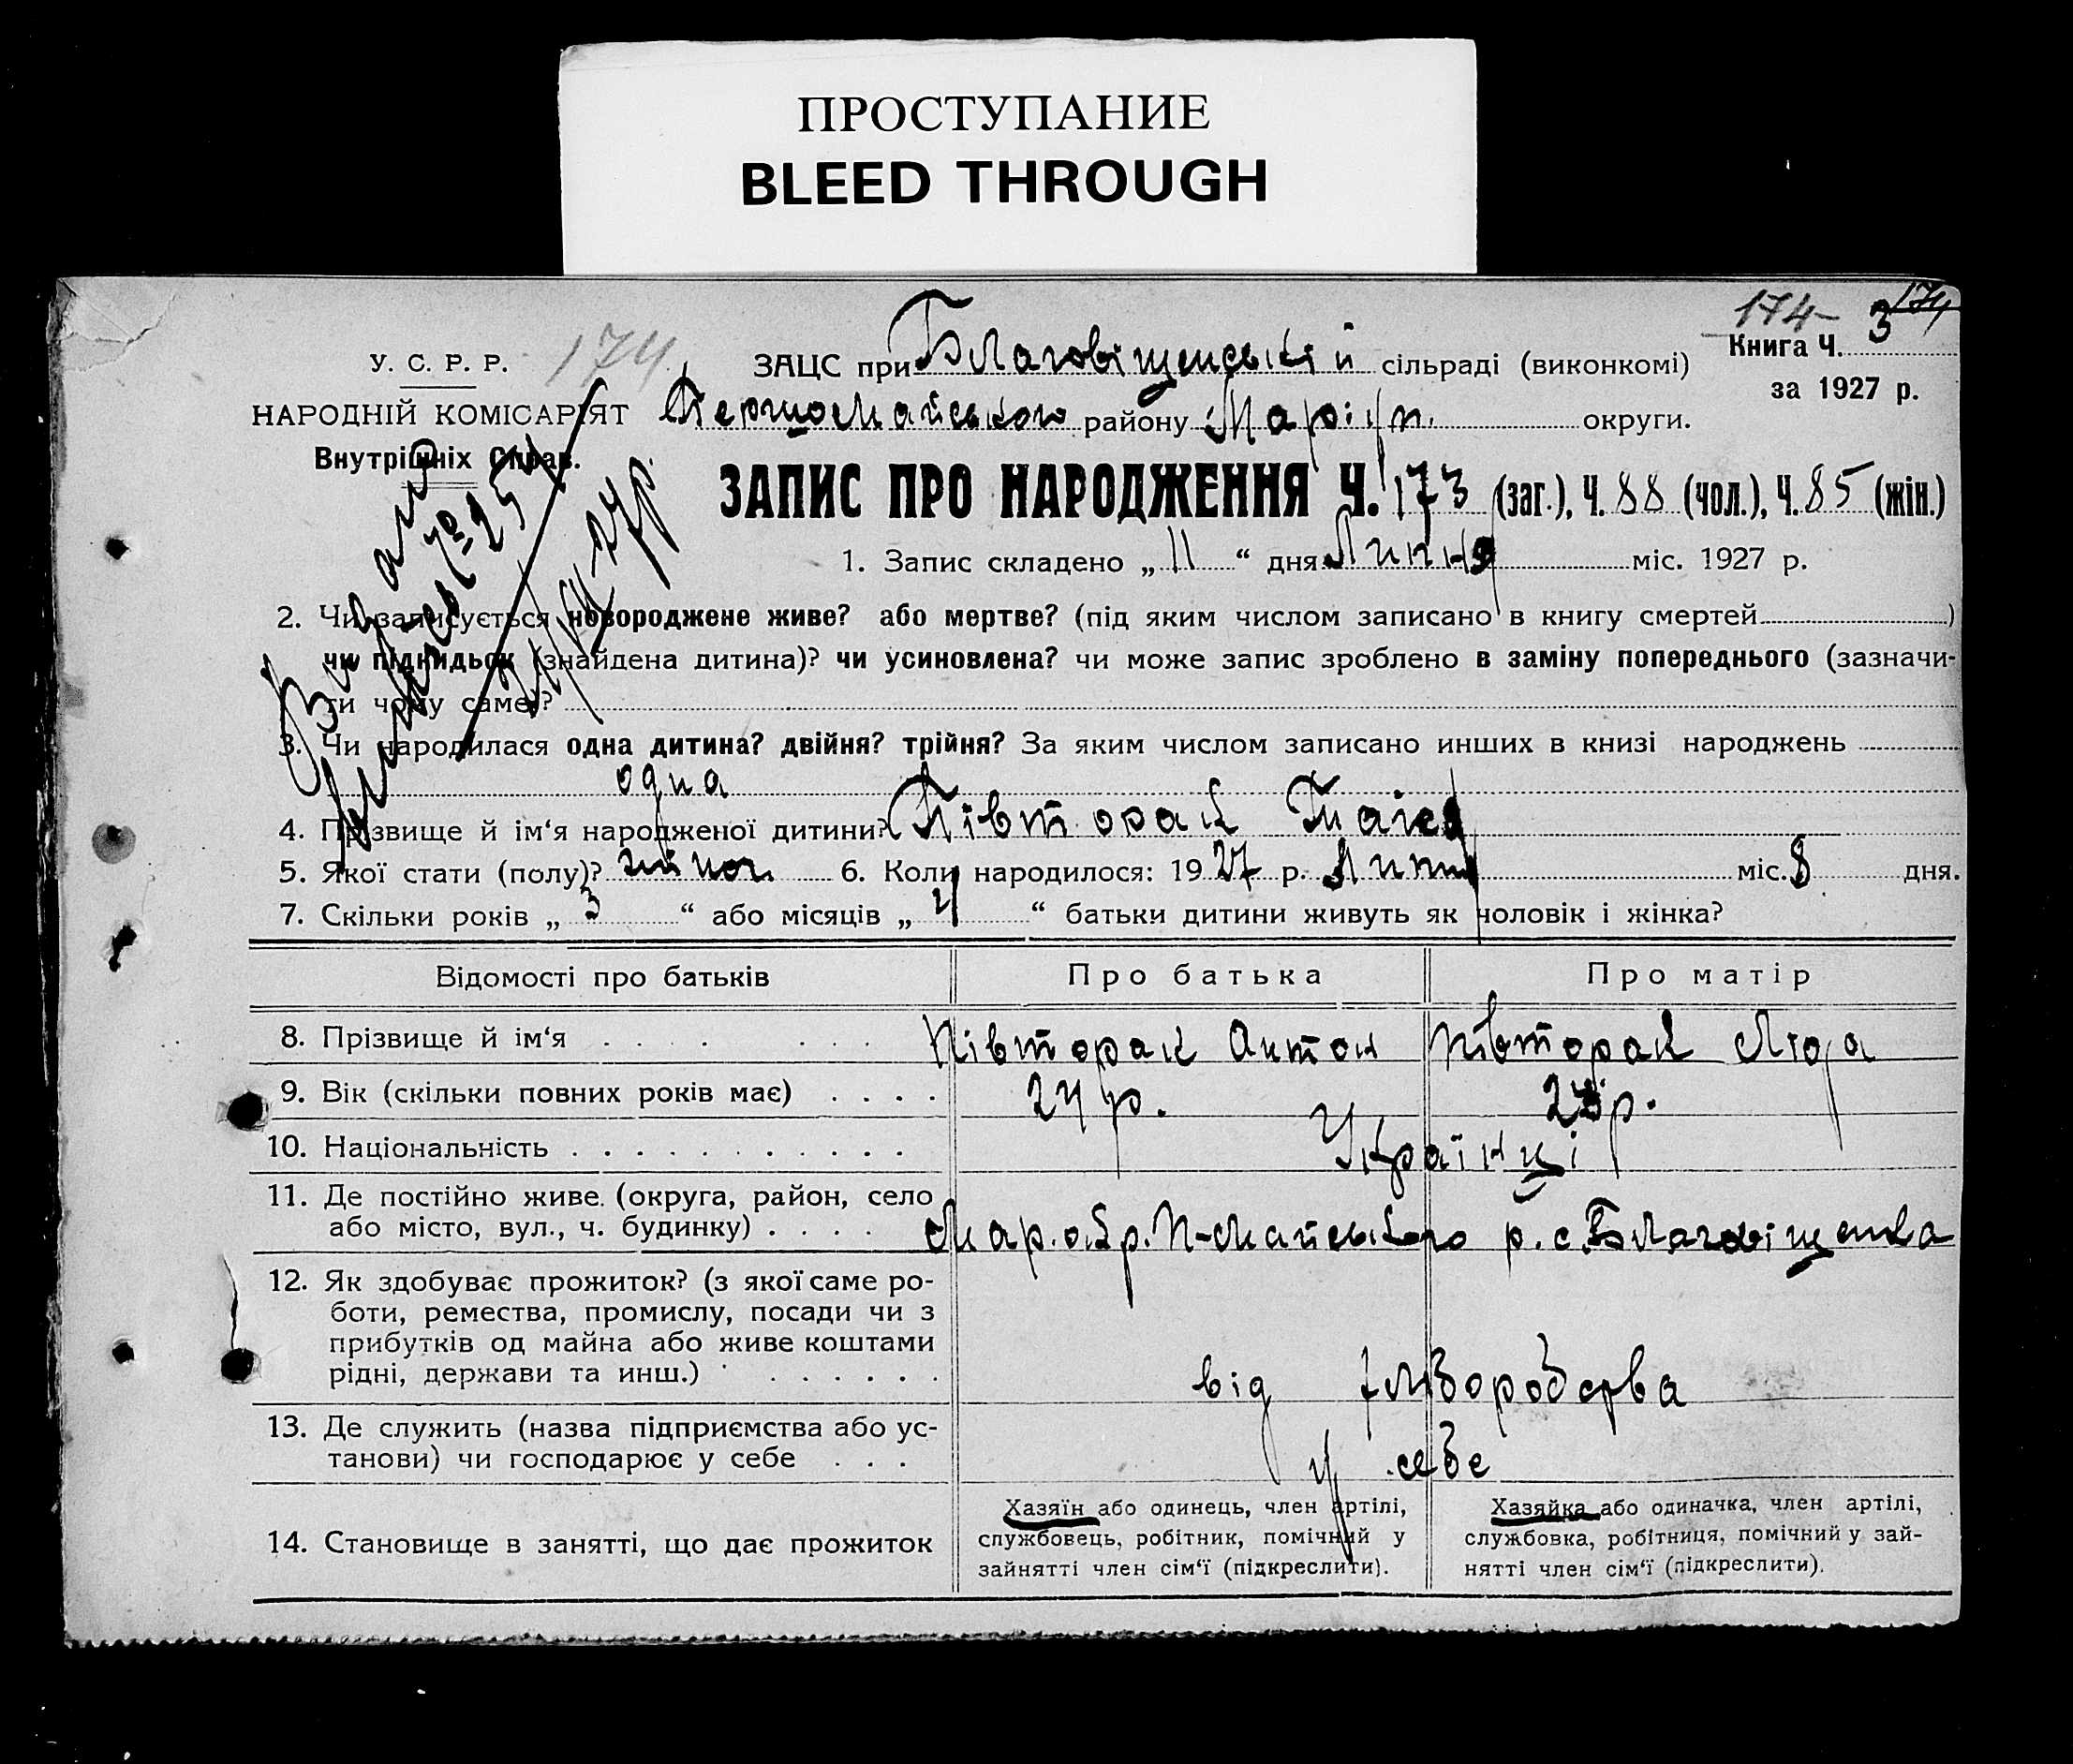 ПРОСТУПАНИЕ
BLEED THROUGH
174 174
У. С. Р. Р. 174 ЗАЦС при Благовіщенській сільраді (виконкомі) Книга Ч. 3
за 1927 р.
НАРОДНІЙ КОМІСАРІЯТ Першомайського району Маріуп. округи.
Внутрішніх Справ.
ЗАПИС ПРО НАРОДЖЕННЯ Ч. 173 (заг.), Ч. 88 (чол.), Ч. 85 (жін.)
1. Запис складено „ 11 “ дня Липня міс. 1927 р.
2. Чи записується новороджене живе? або мертве? (під яким числом записано в книгу смертей )
чи підкидьок (знайдена дитина)? чи усиновлена? чи може запис зроблено в заміну попереднього (зазначи-
ти чому саме)?
3. Чи народилася одна дитина? двійня? трійня? За яким числом записано инших в книзі народжень
одна
4. Прізвище й ім‘я народженої дитини? Півторак Таіса
5. Якої стати (полу)? жіноч. 6. Коли народилося: 1927 р. Липня міс. 8 дня.
7. Скільки років „ 3 “ або місяців „ “ батьки дитини живуть як чоловік і жінка?
Видано
Відомості про батьків Про батька Про матір
8. Прізвище й ім‘я Півторак Антон Півторак
9. Вік (скільки повних років має) 24 р. р.
10. Національність Українці
11. Де постійно живе. (округа, район, село
або місто, вул., ч. будинку) Мар. окр. П-Майського р. с. Благовіщенка
12. Як здобуває прожиток? (з якої саме ро-
боти, ремества, промислу, посади чи з
прибутків од майна або живе коштами
рідні, держави та инш.) від хліборобства
13. Де служить (назва підприємства або ус-
танови) чи господарює у себе у себе
14. Становище в занятті, що дає прожиток
Хазяїн або одинець, член артілі,
службовець, робітник, помічний у
зайнятті член сім‘ї (підкреслити).
Хазяйка або одиначка, член артілі,
службовка, робітниця, помічний у зай-
нятті член сім‘ї (підкреслити).